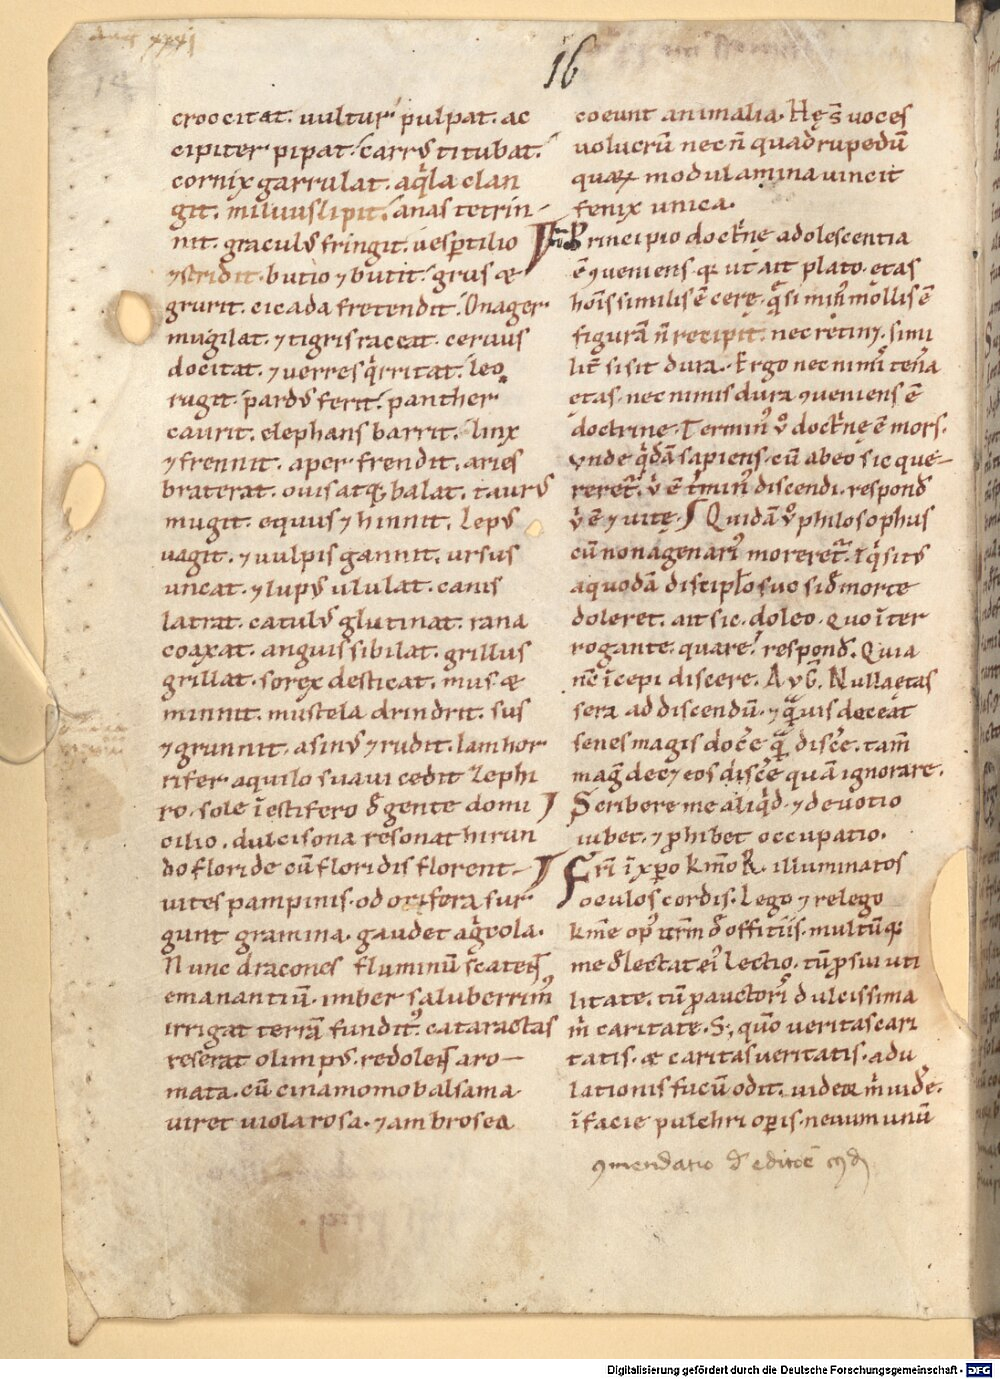 16
croccitat. uultur pulpat. ac
cipiter pipat. carrꝰ titubat.
cornix garrulat. aqͥla clan
git. miluus lipit. anas tetrin-
nit. graculꝰ fringit. uesptilio
⁊stridit. butio ⁊ butit. grus &
grurit. cicada fretendit. Onager
mugilat. ⁊ tigris raccat. ceruus
docitat. ⁊ uerres qͥrritat. leo
rugit. pardꝰ ferit. panther
caurit. elephans barrit. linx
⁊frennit. aper frendit. aries
braterat. ouis atq; balat. taurꝰ
mugit. equus ⁊ hinnit. Lepꝰ
uagit. ⁊ uulpis gannit. ursus
uncat. ⁊ lupꝰ ululat. canis
latrat. catulꝰ glutinat. rana
coaxat. anguis sibilat. grillus
grillat. sorex desticat. mus &
minnit. mustela drindrit. sus
⁊grunnit. asinꝰ ⁊ rudit. Iam hor
rifer aquilo suaui cedit Zephi
ro. sole ī estifero d̄gente domi
cilio. dulcisona resonat hirun
do floride cū floridis florent-
uites pampinis. odorifera sur
gunt gramina. gaudet agͥcola.
Nunc dracones fluminū scateb̄
emanantiū. imber saluberrimꝰ
irrigat terrā fundit᷑. cataractas
reserat olimpꝰ. redolent aro-
mata. cū cinamomo balsama
uiret uiola rosa. ⁊ ambrosea
coeunt animalia. Hęs voces
uolucrū nec n̄ quadrupedū
quaꝝ modulamina uincit
fenix unica.
Principio doctͥne adolescentia
ē ꝯueniens. qͥ ut ait plato. etas
hoīs similis ē cere. qͣ si nimͥ mollis ē
figurā n̄ recipit. nec retin&. simi
lit̄ si sit dura. Ergo nec nimͥ tenͣa
etas. nec nimis dura ꝯueniens ē
doctrine. Terminꝰ v̊ doctͥnę ē mors.
vnde qͥdā sapiens. cū ab eo sic que-
reret᷑. qͥs ē t̄minꝰ discendi. respond̄
qͥ ē ⁊ uitę. Quidā v̊ philosophus
cū nonagenariꝰ moreret᷑. ⁊ qͥsitꝰ
a quodā discipl̄o suo si d̄ morte
doleret. ait sic. doleo. Quo īter
rogante. quare? respond̄. Quia
nc̄ īcepi discere. AVG. Nulla etas
sera ad discendū. ⁊ qͣuis deceat
senes magis docē qͣ discē. tam̄
mag̃ dec& eos discē quā ignorare.
Scribere me aliqͥd. ⁊ deuotio
iubet. ⁊ ꝓhibet occupatio.
Frī ī xp̄o kmo R. illuminatos
oculos cordis. Lego ⁊ relego
kme opꝰ ur̄m d̄ offitiis. multūq;
me d̄lectat eiꝰ lectio. tū ꝓ sui uti
litate. tū ꝓ auctoriˢ dulcissima
m̄ caritate. S; quō ueritas cari
tatis. & caritas ueritatis. adu
lationis fucū odit. uideor m̄ uidē.
ī facie pulchri opis. neuum unū
ꝯmendatio d̄ editōe